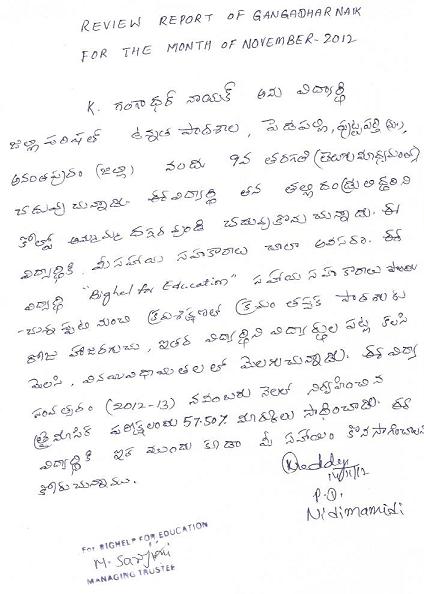 REVIEW REPORT OF GANGADHAR NAIK
FOR THE MONTH OF NOVEMBER-2012
K. గంగాధర్ నాయక్ అను విద్యార్థి
జిల్లా పరిషత్ ఉన్నత పాఠశాల, పెడపల్లి, పుట్టపర్తి (మం),
అనంతపురం (జిల్లా) నందు 9వ తరగతి (తెలుగు మాధ్యమంలో)
చదువుచున్నాడు. ఈ విద్యార్థి తన తల్లిదండ్రులిద్దరిని
కోల్పోయి అమ్మమ్మ దగ్గర వుండి చదువుకొనుచున్నాడు. ఈ
విద్యార్థికి మీ సహాయ సహకారాలు చాలా అవసరం. ఈ
విద్యార్థి "Bighel for Education" సహాయ సహకారాలు పొందు
-చున్నప్పటి నుంచి క్రమశిక్షణలో క్రమం తప్పక పాఠశాలకు
రోజు హాజరగుచు, ఇతర విద్యార్థిని విద్యార్థుల పట్ల కలసి
మెలసి, వినయవిధాయతలతో మెలగుచున్నాడు. ఈ విద్యా
సంవత్సరం (2012-13) నవంబరు నెలలో నిర్వహించిన
త్రైమాసిక పరీక్షలందు 57.50% మార్కులు సాధించాడు. ఈ
విద్యార్థికి ఇక ముందు కూడా మీ సహాయం కొనసాగించాలని
కోరుచున్నాము.
Reddy
14/11/12
P.O.
Nidimamidi
For BIGHELP FOR EDUCATION
MANAGING TRUSTEE